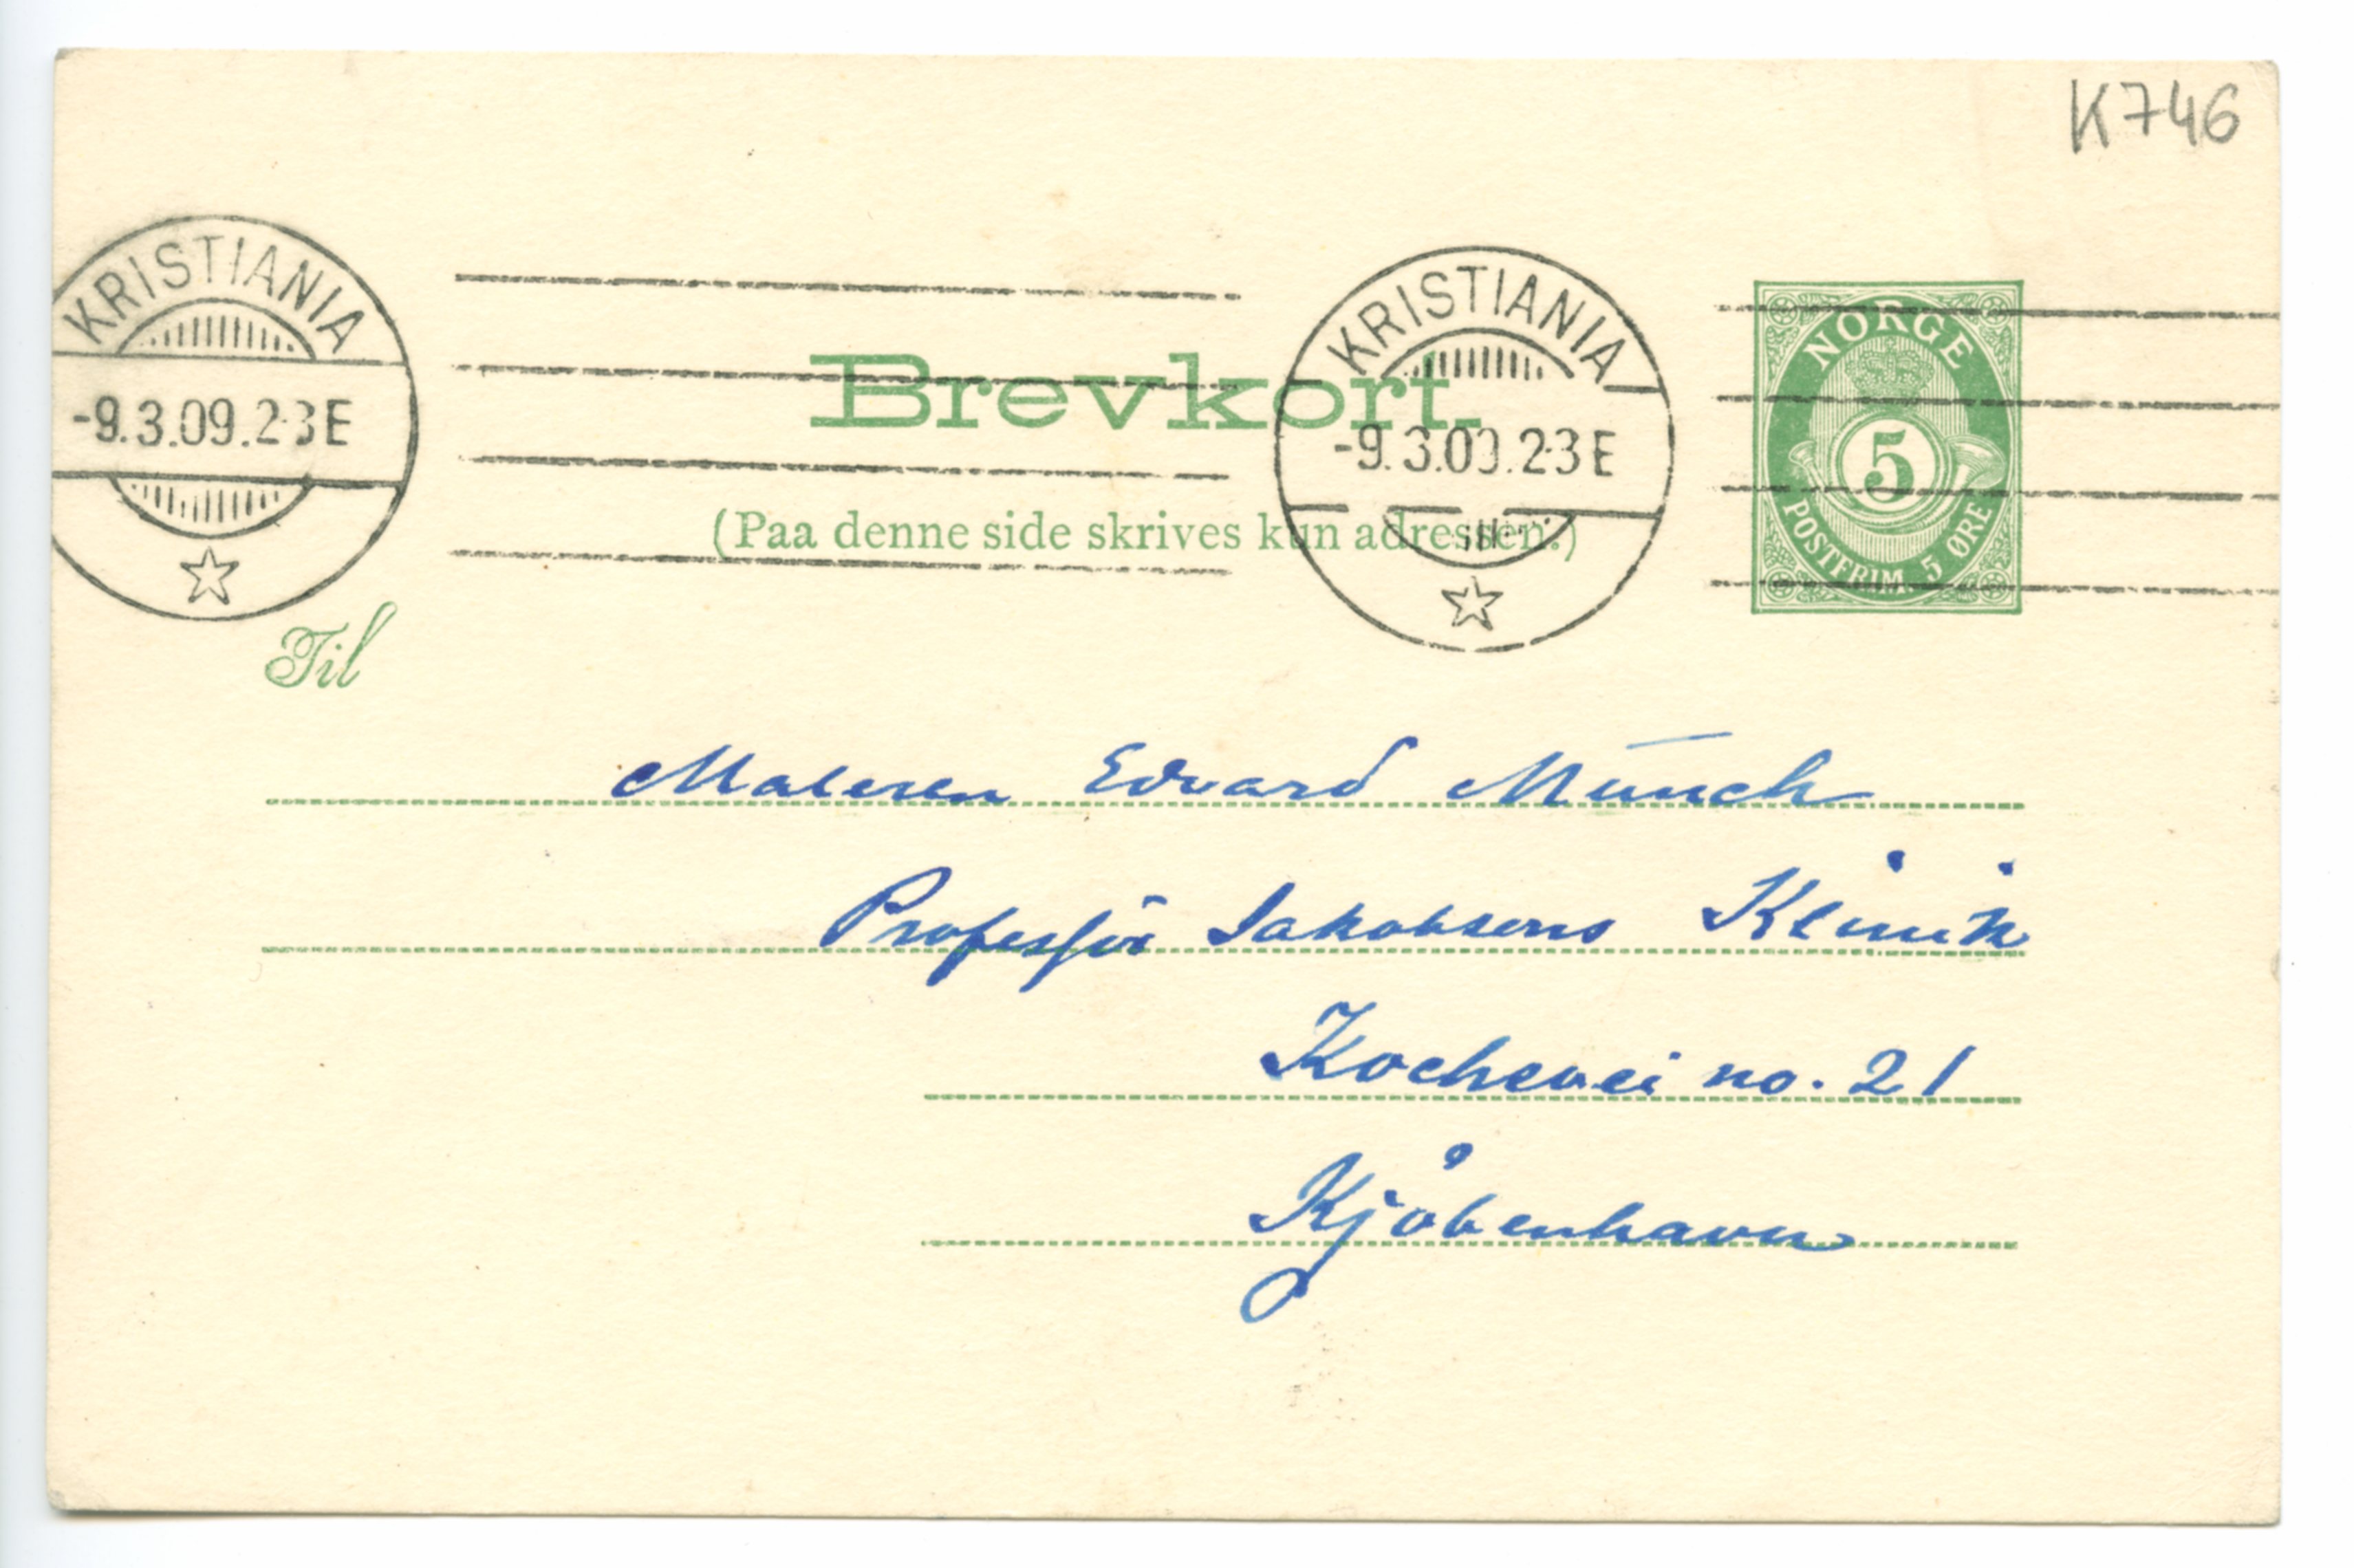 K746
KRISTIANIA
-9.3.09.2-3E
KRISTIANIA
-9.3.09.2-3E
NORGE
5
POSTFRIM. 5 ØRE
Brevkort.
(Paa denne side skrives kun adressen.)
Til
Maleren Edvard Munch
Professor Jakobsens Klinik
Kochsvei no. 21
Kjøbenhavn